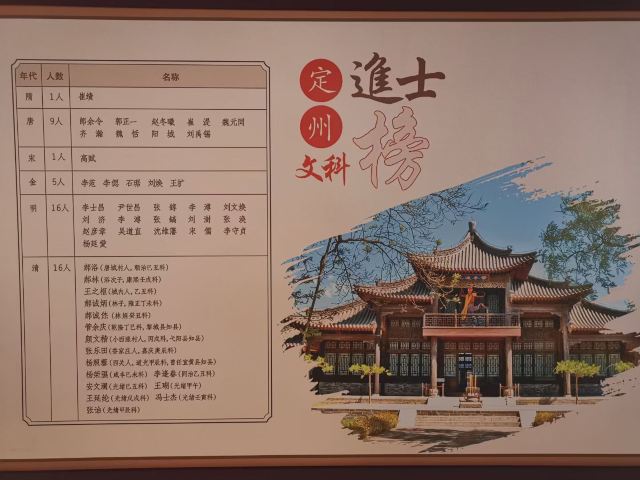 定州
文科
進士
榜
年代 人数 名称
隋 1人 崔绩
唐 9人 郎余令 郭正一 赵冬曦 崔湜 魏元同
齐瀚 魏恬 阳城 刘禹锡
宋 1人 高赋
金 5人 李范 李偲 石琚 刘焕 王扩
明 16人 李士昌 尹世昌 张錞 李溥 刘文焕
刘济 李溥 张鏻 刘澍 张涣
赵彦章 吴道直 沈维藩 宋儒 李守贞
杨延爱
清 16人 郝浴(唐城村人,顺治己丑科)
郝林(浴次子,康熙壬戌科)
王之枢(城内人,乙丑科)
郝诚炳(林子,雍正丁未科)
郝诚
管余庆
颜文精
张乐田
杨照藜
杨荣 李逢春(同治己丑科)
安文澜(光绪己丑科) 王瑚(光绪甲午)
王延纶(光绪戊戌科) 冯士杰(光绪壬寅科)
张诒(光绪甲辰科)